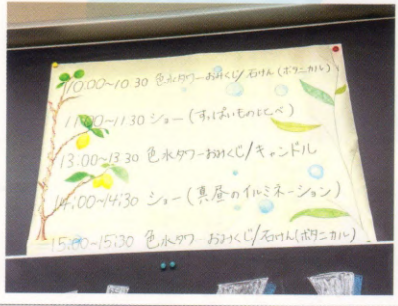 10:00~10:30 色水タワーおみくじ/石けん(ボタニカル)
11:00~11:30 ショー(すっぱいものはどべ)
13:00~13:30 色水タワーおみくじ/キャンドル
14:00~14:30 ショー(真昼のイルミネーション)
15:00~15:30 色水タワーおみくじ/石けん(ボタニカル)